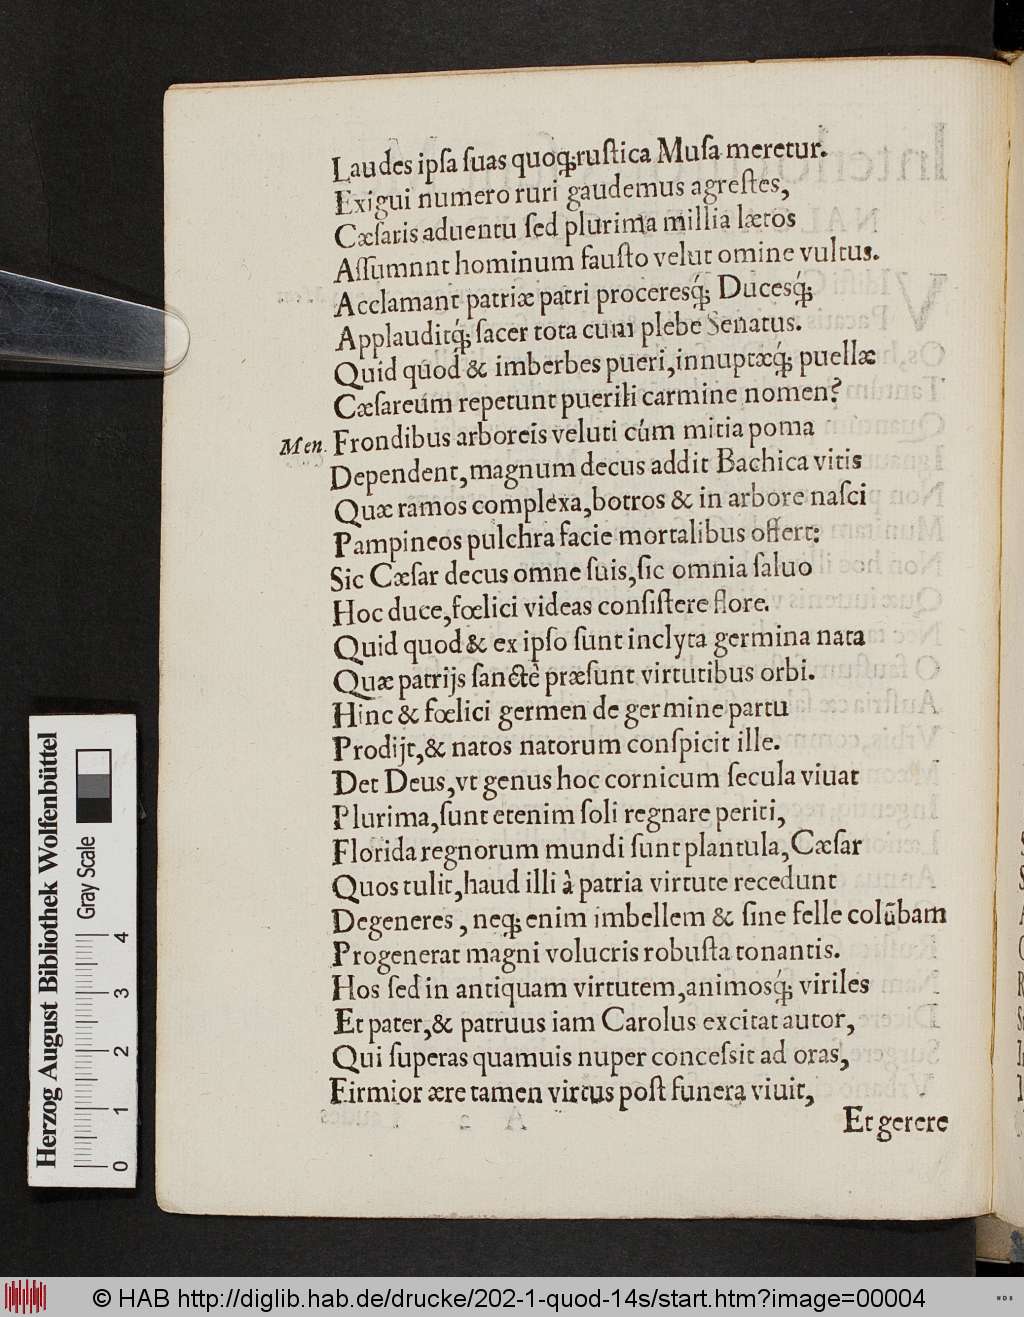 Laudes ipſa ſuas quoq; ruſtica Muſa meretur.
Exigui numero ruri gaudemus agreſtes,
Cæſaris aduentu ſed plurima millia lætos
Aſſumnnt hominum fauſto velut omine vultus.
Acclamant patriæ patri proceresq́; Ducesq́;
Applauditq́; ſacer tota cum plebe Senatus.
Quid quod & imberbes pueri, innuptæq́; puellæ
Cæſareum repetunt puerili carmine nomen?
Men. Frondibus arboreis veluti cúm mitia poma
Dependent, magnum decus addit Bachica vitis
Quæ ramos complexa, botros & in arbore naſci
Pampineos pulchra facie mortalibus offert:
Sic Cæſar decus omne ſuis, ſic omnia ſaluo
Hoc duce, fœlici videas conſiſtere flore.
Quid quod & ex ipſo ſunt inclyta germina nata
Quæ patrijs ſanctè præſunt virtutibus orbi.
Hinc & fœlici germen de germine partu
Prodijt, & natos natorum conſpicit ille.
Det Deus, vt genus hoc cornicum ſecula viuat
Plurima, ſunt etenim ſoli regnare periti,
Florida regnorum mundi ſunt plantula, Cæſar
Quos tulit, haud illi à patria virtute recedunt
Degeneres, neq; enim imbellem & ſine felle colūbam
Progenerat magni volucris robuſta tonantis.
Hos ſed in antiquam virtutem, animosq́; viriles
Et pater, & patruus iam Carolus excitat autor,
Qui ſuperas quamuis nuper conceſsit ad oras,
Firmior ære tamen virtus poſt funera viuit,
Et gerere
Herzog August Bibliothek Wolfenbüttel
Gray Scale
0 1 2 3 4
© HAB http://diglib.hab.de/drucke/202-1-quod-14s/start.htm?image=00004